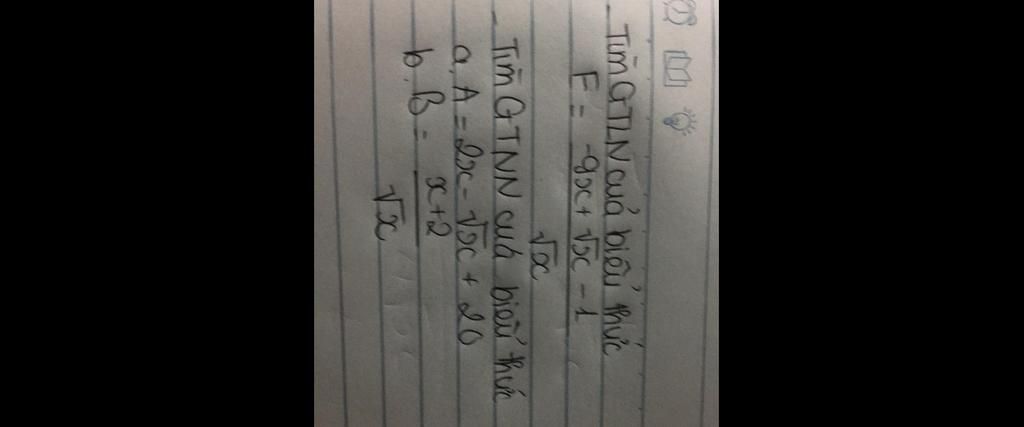 - Tìm GTLN của biểu thức
F = -9x + √x - 1
√x
- Tìm GTNN của biểu thức
a, A = 2x - √x + 20
b, B = x+2
√x